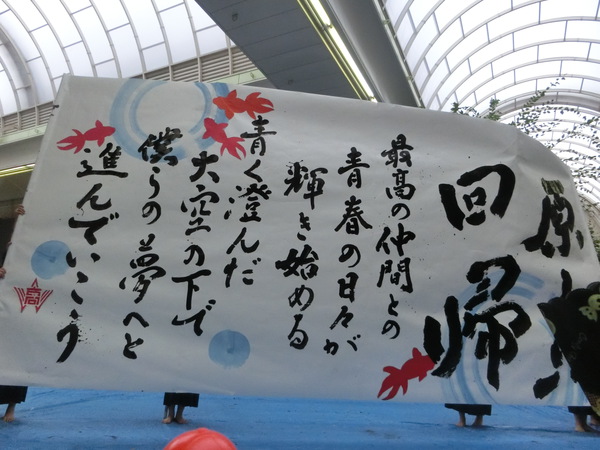 原
回帰
最高の仲間との
青春の日々が
輝き始める
青く澄んだ
大空の下で
僕らの夢へと
進んでいこう
高